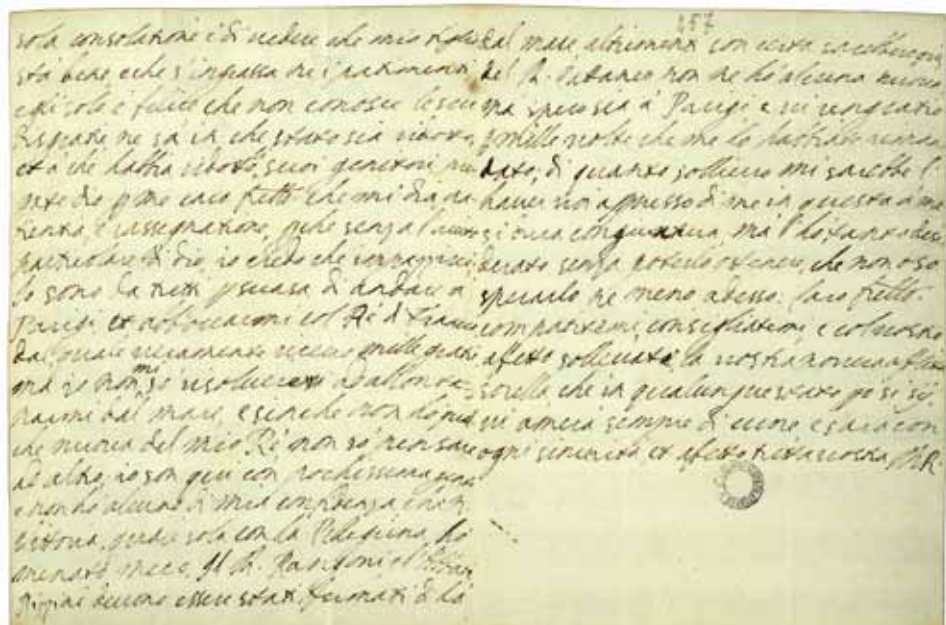 157
sola consolatione è di vedere che mio figlio
sta bene e che s'ingrassa ne i patimenti
egli solo è felice che non conosce le sue
disgratie ne sa in che stato sia ridotto
et a che habbia ridotto i suoi genitori
Dio p me caro frello che mi dia pa
tienza, e rassegnatione, perche senza l'aiuto
particolare di Dio, io credo che
Io sono da tutti psuasa di andare a
Parigi et abboccarmi col Re di Francia
dal quale veramente ricevo mille gratie
ma io non mi so risolvere ad allonta
narmi dal mare, e sin che non ho qual
che nuova del mio Re, non so pensare
ad altro, io son qui con pochissima
e non ho alcuno di mia confidenza che
Vittoria, quasi sola con la Pelegrina, ho
menato meco, Il P. Ranzoni et
deuono essere stati fermati di là
dal mare altrimenti con certa sarebbero qui
del P. non ne ho alcuna nuova
ma spero sia a Parigi e vi ringratio
mille volte che me lo habbiate riman
dato, di quanto sollievo mi sarebbe l'
haver voi appresso di me in questa
congiuntura, ma l'ho tanto desi
derato senza poterlo ottenere, che non oso
sperarlo ne meno adesso. Caro frello
compatitemi, consigliatemi, e col vostro
affetto sollevate la vostra povera
sorella che in qualunque stato
vi amerà sempre di cuore e sarà con
ogni sincerità et affetto tutta vostra M.R.